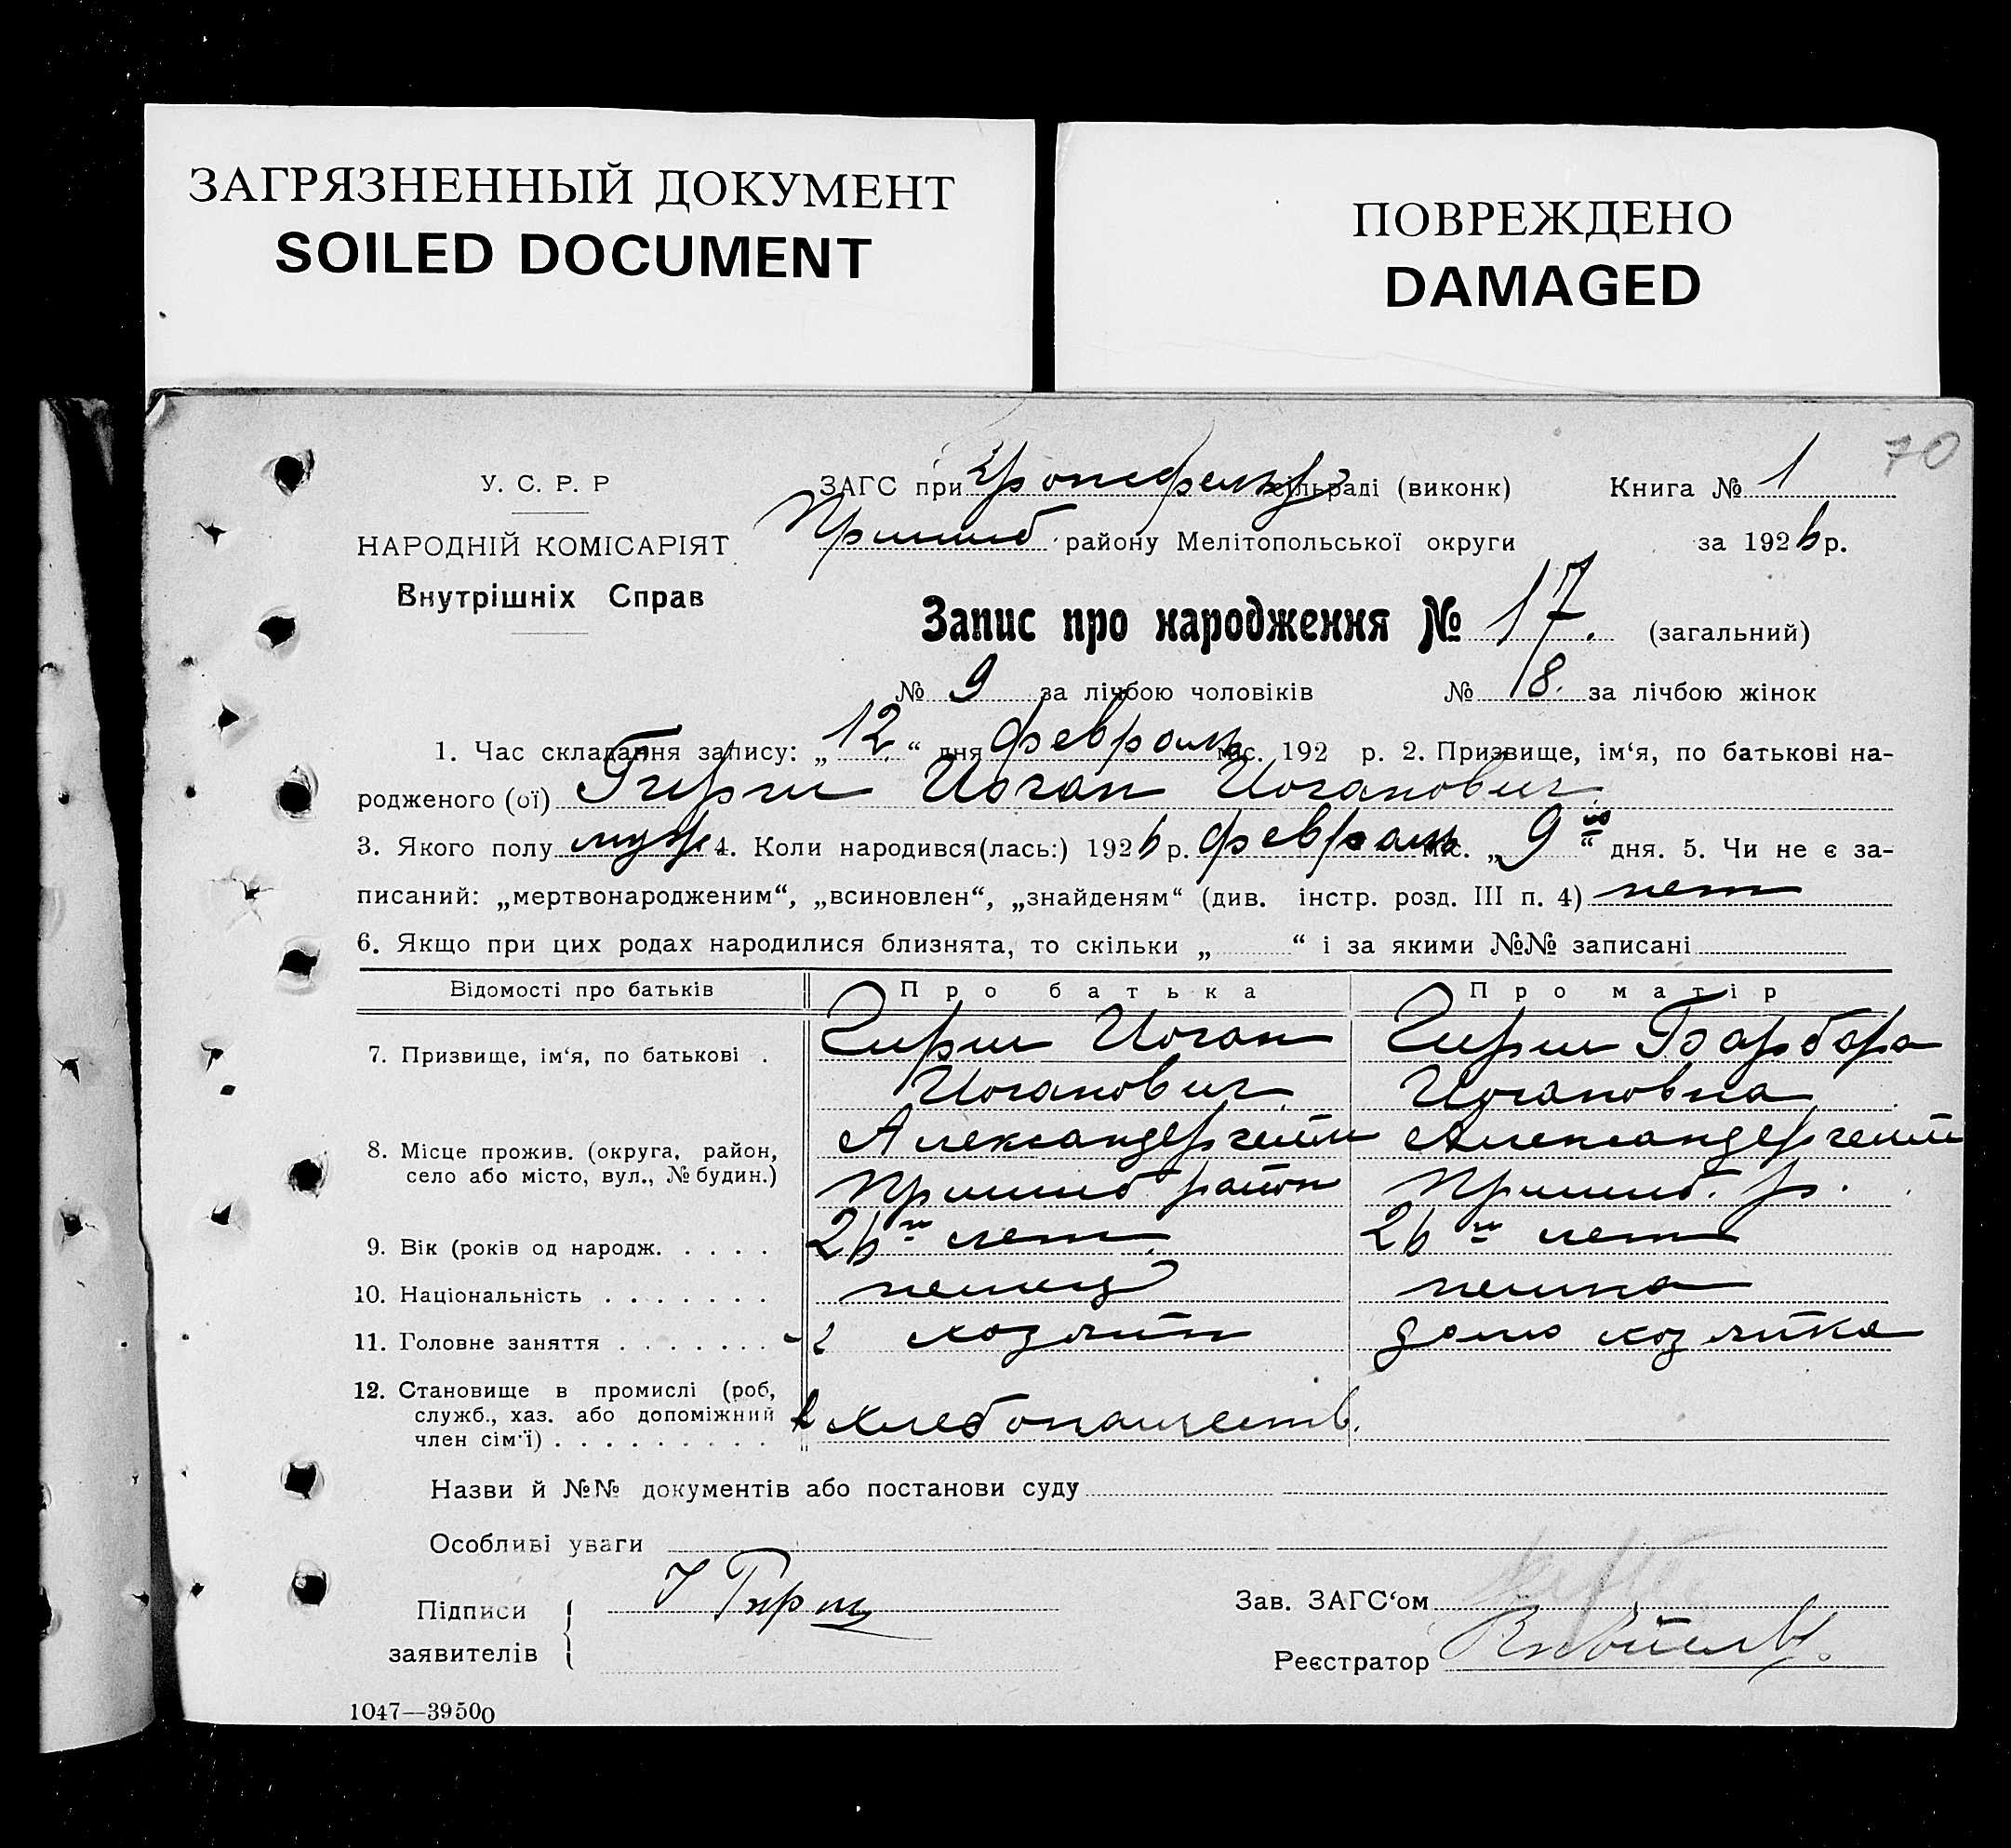 ЗАГРЯЗНЕННЫЙ ДОКУМЕНТ
SOILED DOCUMENT
ПОВРЕЖДЕНО
DAMAGED
70
У. С. Р. Р
НАРОДНІЙ КОМІСАРІЯТ
Внутрішніх Справ
ЗАГС при сільраді (виконк) Книга № 1
Пришиб району Мелітопольської округи за 1926 р.
Запис про народження № 17. (загальний)
№ 9 за лічбою чоловіків № 8. за лічбою жінок
1. Час складання запису: „12“ дня февраль міс. 192 р. 2. Призвище, ім‘я, по батькові на-
родженого (ої) Гирш Иоган Иоганович
3. Якого полу муж. 4. Коли народився(лась:) 1926 р. февраль міс. „9го“ дня. 5. Чи не є за-
писаний: „мертвонародженим“, „всиновлен“, „знайденям“ (див. інстр. розд. III п. 4) нет
6. Якщо при цих родах народилися близнята, то скільки „ “ і за якими №№ записані
Відомості про батьків Про батька Про матір
7. Призвище, ім‘я, по батькові . Гирш Иоган Гирш Барбара
Иоганович Иогановна
8. Місце прожив. (округа, район, Александергейм Александергейм
село або місто, вул., № будин.) Пришиб район Пришиб. р.
9. Вік (років од народж. . . . . 26 лет 26 лет
10. Національність . . . . . . . немец немка
11. Головне заняття . . . . . . . хозяин домо хозяйка
12. Становище в промислі (роб,
служб., хаз. або допоміжний хлебопашеств.
член сім‘ї) . . . . . . . . .
Назви й №№ документів або постанови суду
Особливі уваги
Підписи И Гирш Зав. ЗАГС‘ом
заявителів Реєстратор
1047—39500